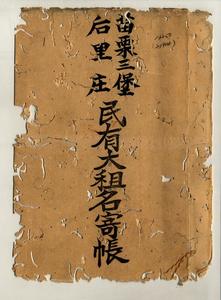 苗栗三堡
后里庄
民有大租名寄帳